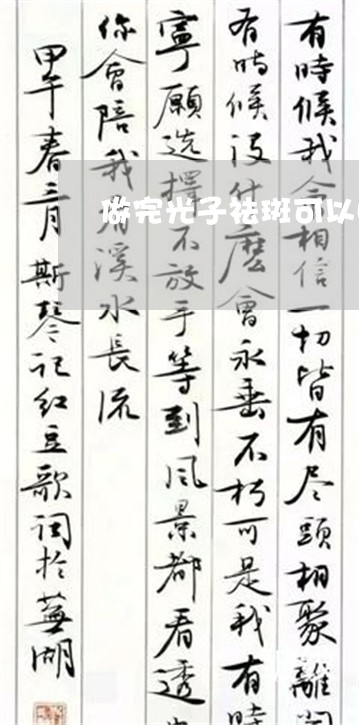 做完光子祛斑可以
有時候我会相信一切皆有尽頭相聚離
有時候没什麽會永垂不朽可是我有時
寧願选擇不放手等到风景都看透
你會陪我看溪水長流
甲午春三月斯琴记红豆歌词於蕪湖